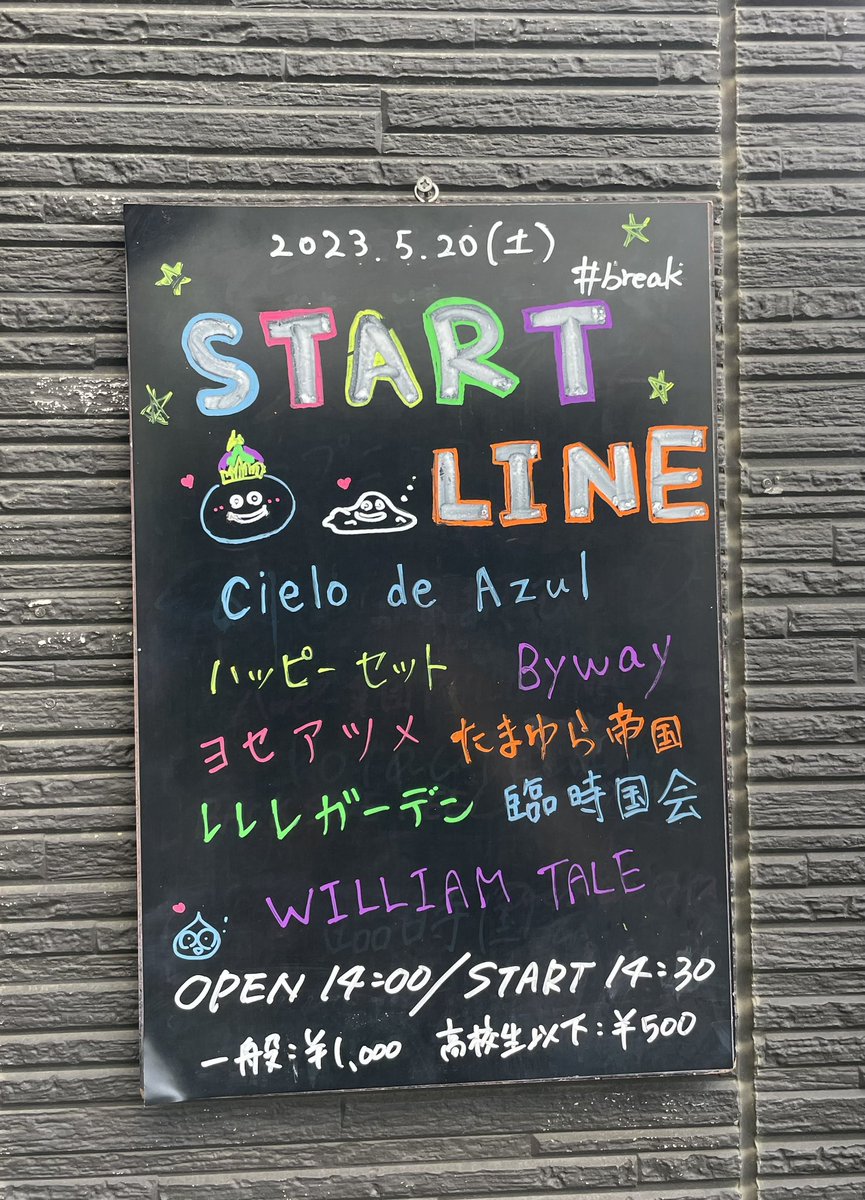 2023.5.20(土)
#break
START
LINE
Cielo de Azul
ハッピーセット Byway
ヨセアツメ たまゆら帝国
レレレガーデン 臨時国会
WILLIAM TALE
OPEN 14:00/START 14:30
一般:¥1,000 高校生以下:¥500